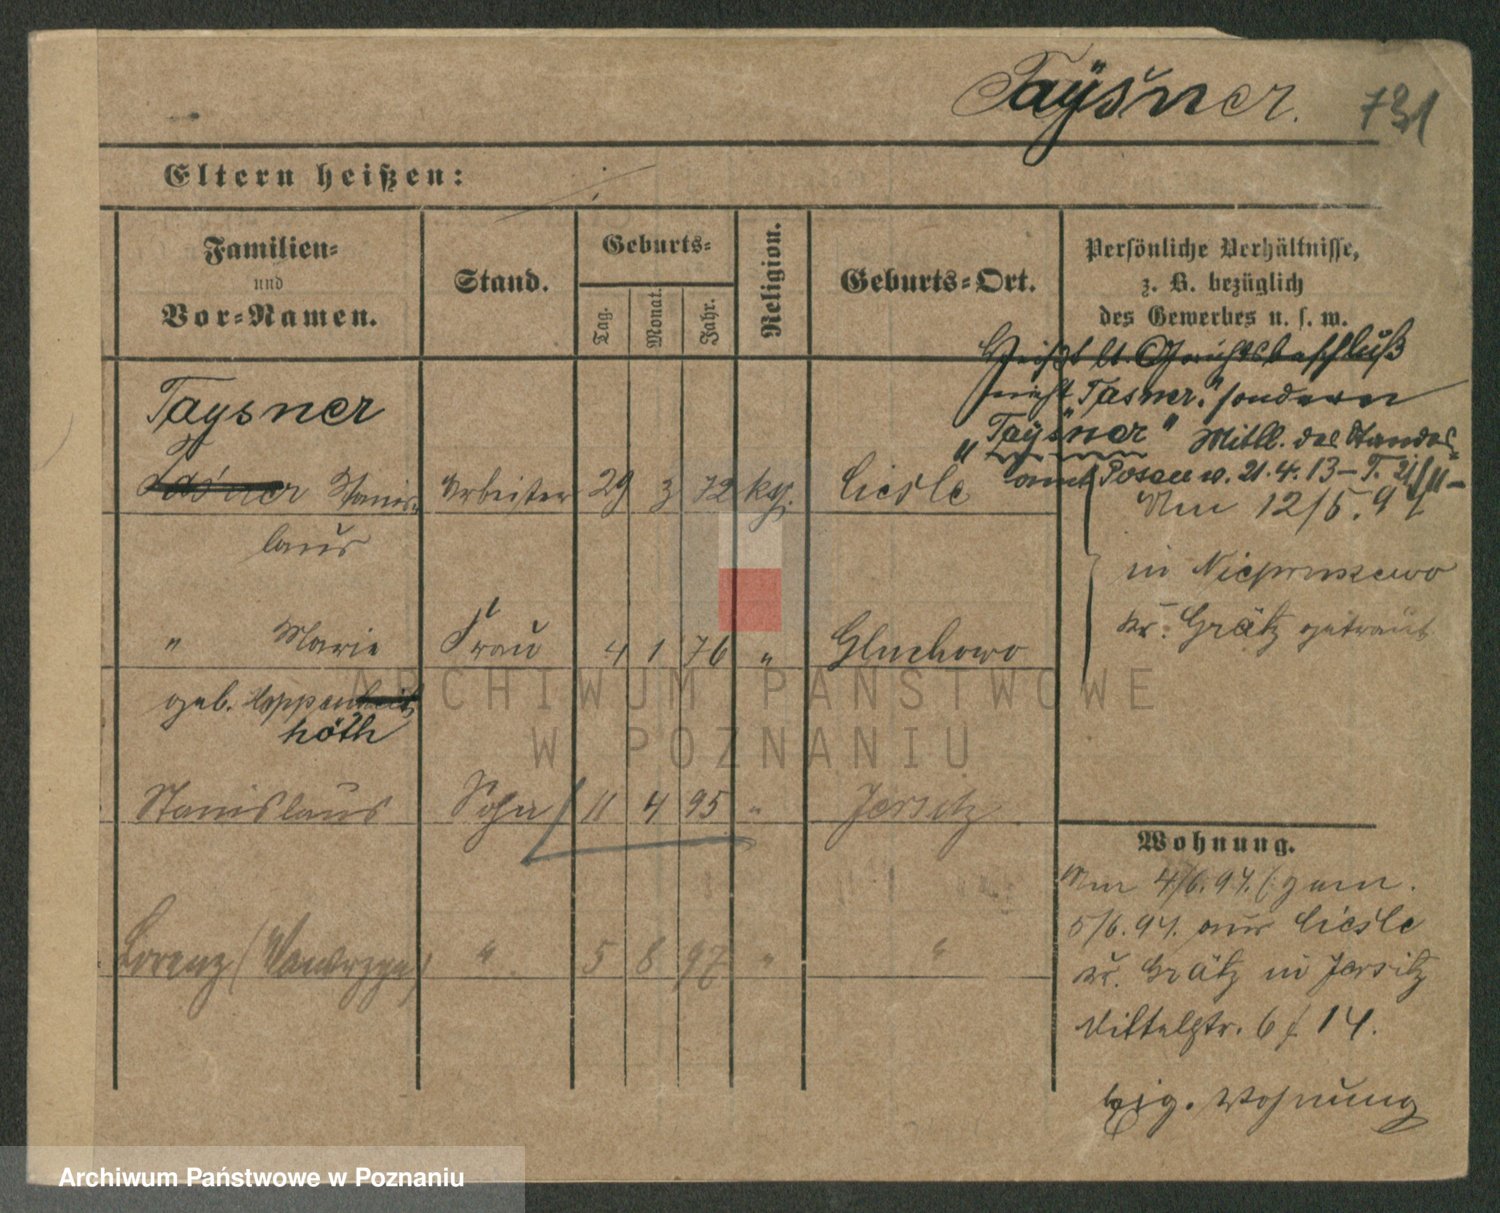 Taÿsner. 731
Eltern heißen:
Familien-
und
Vor-Namen.
Stand.
Geburts-
Tag.
Monat.
Jahr.
Religion.
Geburts-Ort.
Persönliche Verhältnisse,
z. B. bezüglich
des Gewerbes u. s. w.
Heißt lt. Gerichtsbeschluß
nicht "Tasner" sondern
"Taÿsner" Mittl. des Standes-
amt Posen v. 21.4.13
Taysner
Tasner Stanis- Arbeiter 29 3 72 kath. Ciesle
laus
Am 12/5. 94
in Niepruszewo
Kr. Grätz getraut
" Marie Frau 4 1 76 " Gluchowo
geb. Koppenheit
höth
Stanislaus Sohn 11 4 95 " Jersitz
Lorenz (Wawrzyn) " 5 8 97 " "
Wohnung.
Am 4/6. 94. (gem.
5/6. 94. aus Ciesle
Kr. Grätz in Jersitz
Mittelstr. 6 f 14.
eig. Wohnung
ARCHIWUM PAŃSTWOWE
W POZNANIU
Archiwum Państwowe w Poznaniu